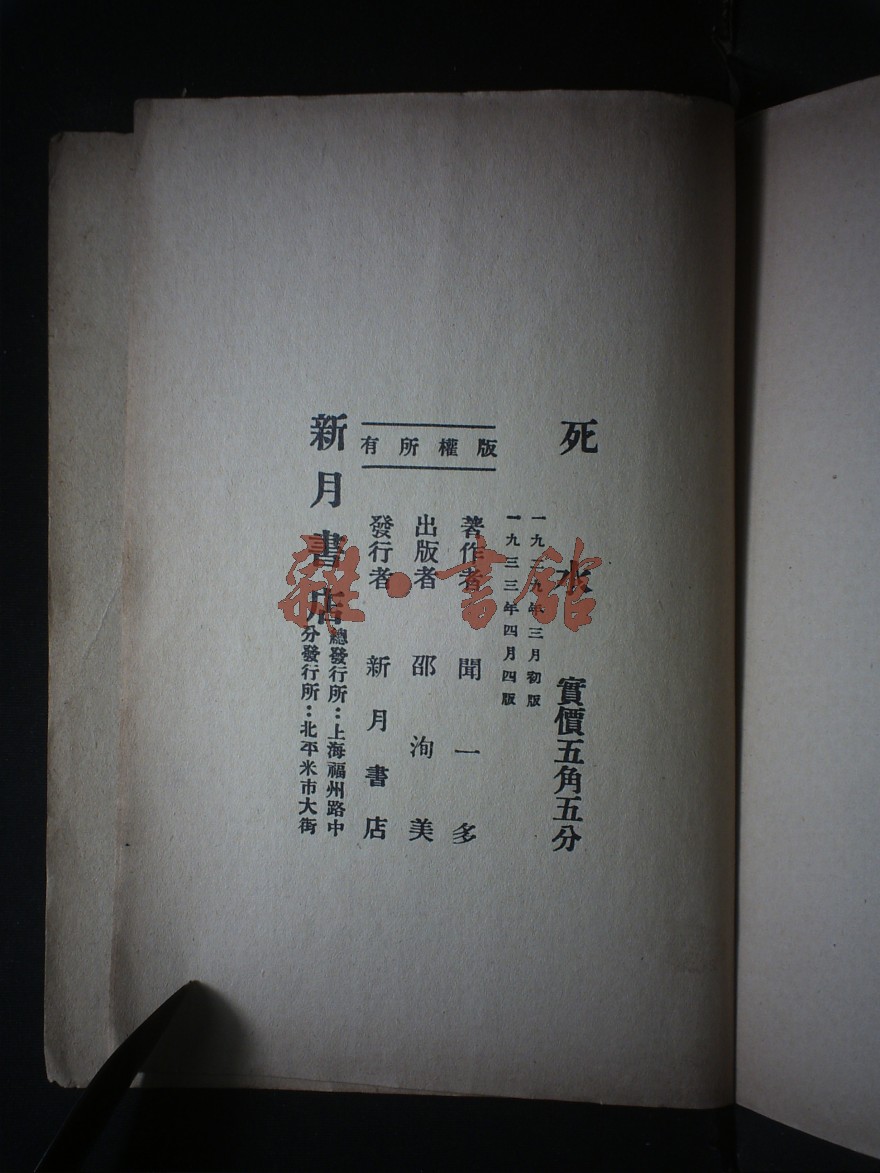 死水 實價五角五分
一九二九年三月初版
一九三三年四月四版
版權所有
著作者 聞一多
出版者 邵洵美
發行者 新月書店
新月書店
總發行所：上海福州路中
分發行所：北平米市大街
雜·書館